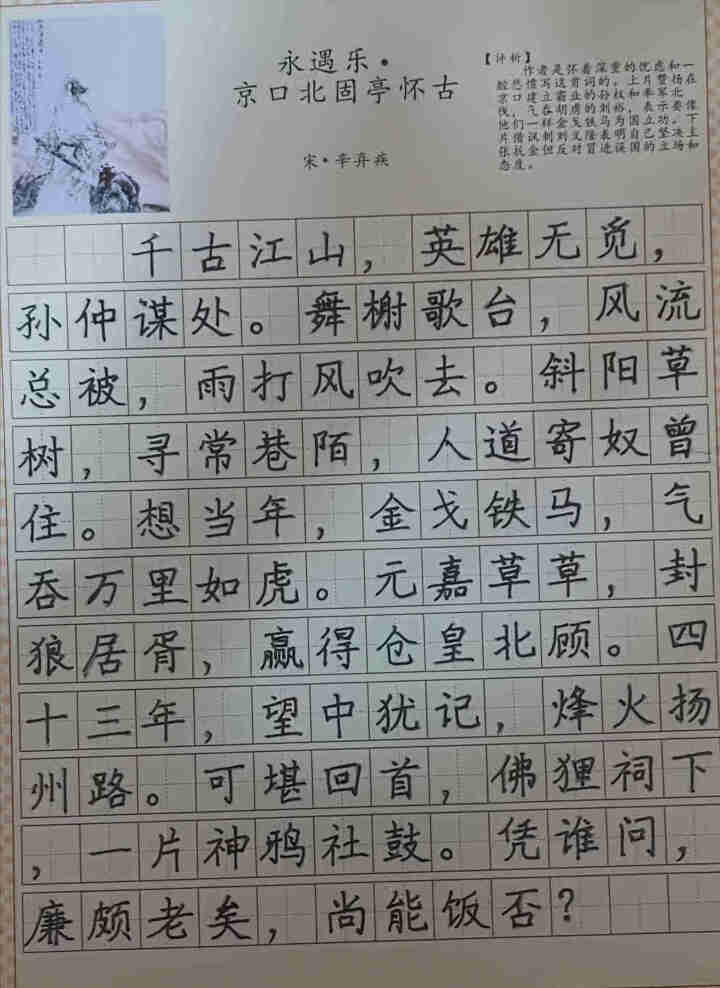 永遇乐·
京口北固亭怀古
宋·辛弃疾
【评析】
作者是怀着深重的忧虑和一
腔悲愤写这首词的。上片赞扬在
京口建立霸业的孙权和率军北
伐，气吞胡虏的刘裕，表示要像
他们一样金戈铁马为国立功。下
片借讽刺刘义隆表明自己坚决主
张抗金但反对冒进误国的立场和
态度。
千古江山，英雄无觅，
孙仲谋处。舞榭歌台，风流
总被，雨打风吹去。斜阳草
树，寻常巷陌，人道寄奴曾
住。想当年，金戈铁马，气
吞万里如虎。元嘉草草，封
狼居胥，赢得仓皇北顾。四
十三年，望中犹记，烽火扬
州路。可堪回首，佛狸祠下
，一片神鸦社鼓。凭谁问，
廉颇老矣，尚能饭否？